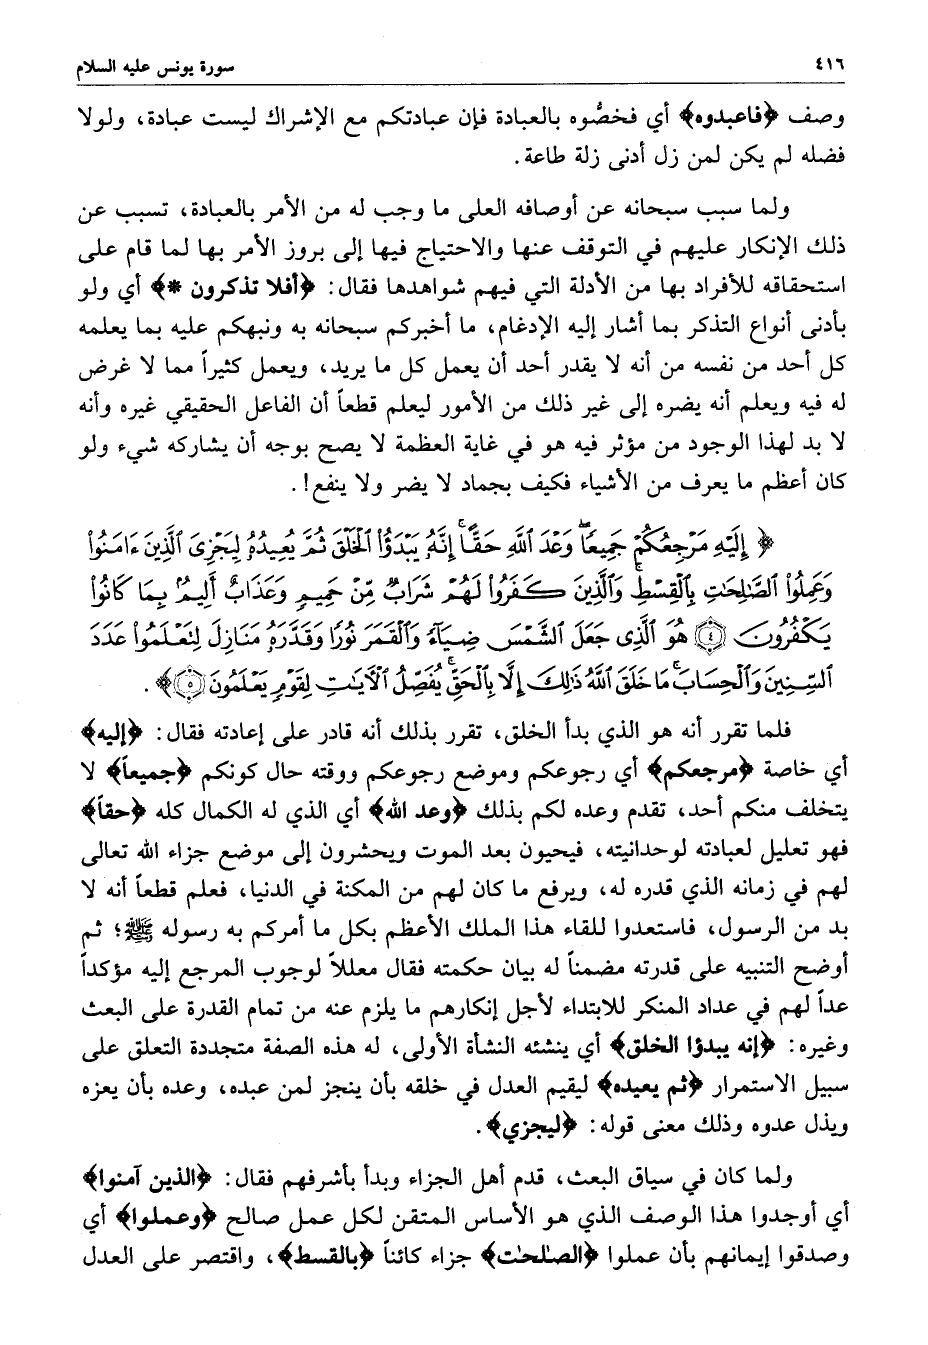 ٤١٦ سورة يونس عليه السلام
وصف ﴿فاعبدوه﴾ أي فخصُّوه بالعبادة فإن عبادتكم مع الإشراك ليست عبادة، ولولا
فضله لم يكن لمن زل أدنى زلة طاعة.
ولما سبب سبحانه عن أوصافه العلى ما وجب له من الأمر بالعبادة، تسبب عن
ذلك الإنكار عليهم في التوقف عنها والاحتياج فيها إلى بروز الأمر بها لما قام على
استحقاقه للأفراد بها من الأدلة التي فيهم شواهدها فقال: ﴿أفلا تذكرون *﴾ أي ولو
بأدنى أنواع التذكر بما أشار إليه الإدغام، ما أخبركم سبحانه به ونبهكم عليه بما يعلمه
كل أحد من نفسه من أنه لا يقدر أحد أن يعمل كل ما يريد، ويعمل كثيراً مما لا غرض
له فيه ويعلم أنه يضره إلى غير ذلك من الأمور ليعلم قطعاً أن الفاعل الحقيقي غيره وأنه
لا بد لهذا الوجود من مؤثر فيه هو في غاية العظمة لا يصح بوجه أن يشاركه شيء ولو
كان أعظم ما يعرف من الأشياء فكيف بجماد لا يضر ولا ينفع!.
﴿إِلَيْهِ مَرْجِعُكُمْ جَمِيعًاۖ وَعْدَ ٱللَّهِ حَقًّاۚ إِنَّهُۥ يَبْدَؤُا۟ ٱلْخَلْقَ ثُمَّ يُعِيدُهُۥ لِيَجْزِىَ ٱلَّذِينَ ءَامَنُوا۟
وَعَمِلُوا۟ ٱلصَّـٰلِحَـٰتِ بِٱلْقِسْطِۚ وَٱلَّذِينَ كَفَرُوا۟ لَهُمْ شَرَابٌ مِّنْ حَمِيمٍ وَعَذَابٌ أَلِيمٌۢ بِمَا كَانُوا۟
يَكْفُرُونَ ٤ هُوَ ٱلَّذِى جَعَلَ ٱلشَّمْسَ ضِيَآءً وَٱلْقَمَرَ نُورًا وَقَدَّرَهُۥ مَنَازِلَ لِتَعْلَمُوا۟ عَدَدَ
ٱلسِّنِينَ وَٱلْحِسَابَۚ مَا خَلَقَ ٱللَّهُ ذَٰلِكَ إِلَّا بِٱلْحَقِّۚ يُفَصِّلُ ٱلْـَٔايَـٰتِ لِقَوْمٍ يَعْلَمُونَ ٥﴾.
فلما تقرر أنه هو الذي بدأ الخلق، تقرر بذلك أنه قادر على إعادته فقال: ﴿إليه﴾
أي خاصة ﴿مرجعكم﴾ أي رجوعكم وموضع رجوعكم ووقته حال كونكم ﴿جميعاً﴾ لا
يتخلف منكم أحد، تقدم وعده لكم بذلك ﴿وعد الله﴾ أي الذي له الكمال كله ﴿حقاً﴾
فهو تعليل لعبادته لوحدانيته، فيحيون بعد الموت ويحشرون إلى موضع جزاء الله تعالى
لهم في زمانه الذي قدره له، ويرفع ما كان لهم من المكنة في الدنيا، فعلم قطعاً أنه لا
بد من الرسول، فاستعدوا للقاء هذا الملك الأعظم بكل ما أمركم به رسوله ﷺ؛ ثم
أوضح التنبيه على قدرته مضمناً له بيان حكمته فقال معللاً لوجوب المرجع إليه مؤكداً
عداً لهم في عداد المنكر للابتداء لأجل إنكارهم ما يلزم عنه من تمام القدرة على البعث
وغيره: ﴿إنه يبدؤا الخلق﴾ أي ينشئه النشأة الأولى، له هذه الصفة متجددة التعلق على
سبيل الاستمرار ﴿ثم يعيده﴾ ليقيم العدل في خلقه بأن ينجز لمن عبده، وعده بأن يعزه
ويذل عدوه وذلك معنى قوله: ﴿ليجزي﴾.
ولما كان في سياق البعث، قدم أهل الجزاء وبدأ بأشرفهم فقال: ﴿الذين آمنوا﴾
أي أوجدوا هذا الوصف الذي هو الأساس المتقن لكل عمل صالح ﴿وعملوا﴾ أي
وصدقوا إيمانهم بأن عملوا ﴿الصلحت﴾ جزاء كائناً ﴿بالقسط﴾، واقتصر على العدل